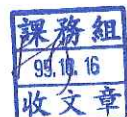 課務組
99.10.16
收文章